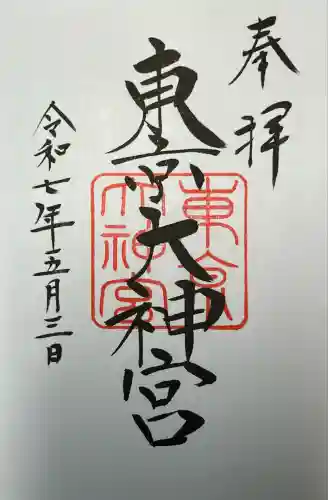 奉拝
東京大神宮
東京大神宮
令和七年五月三日